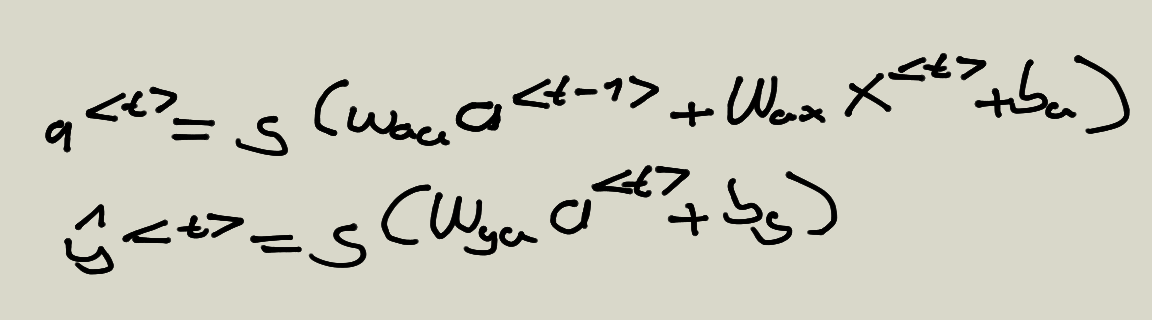 a^{<t>} = g (W_{aa} a^{<t-1>} + W_{ax} x^{<t>} + b_a)
ŷ^{<t>} = g (W_{ya} a^{<t>} + b_y)